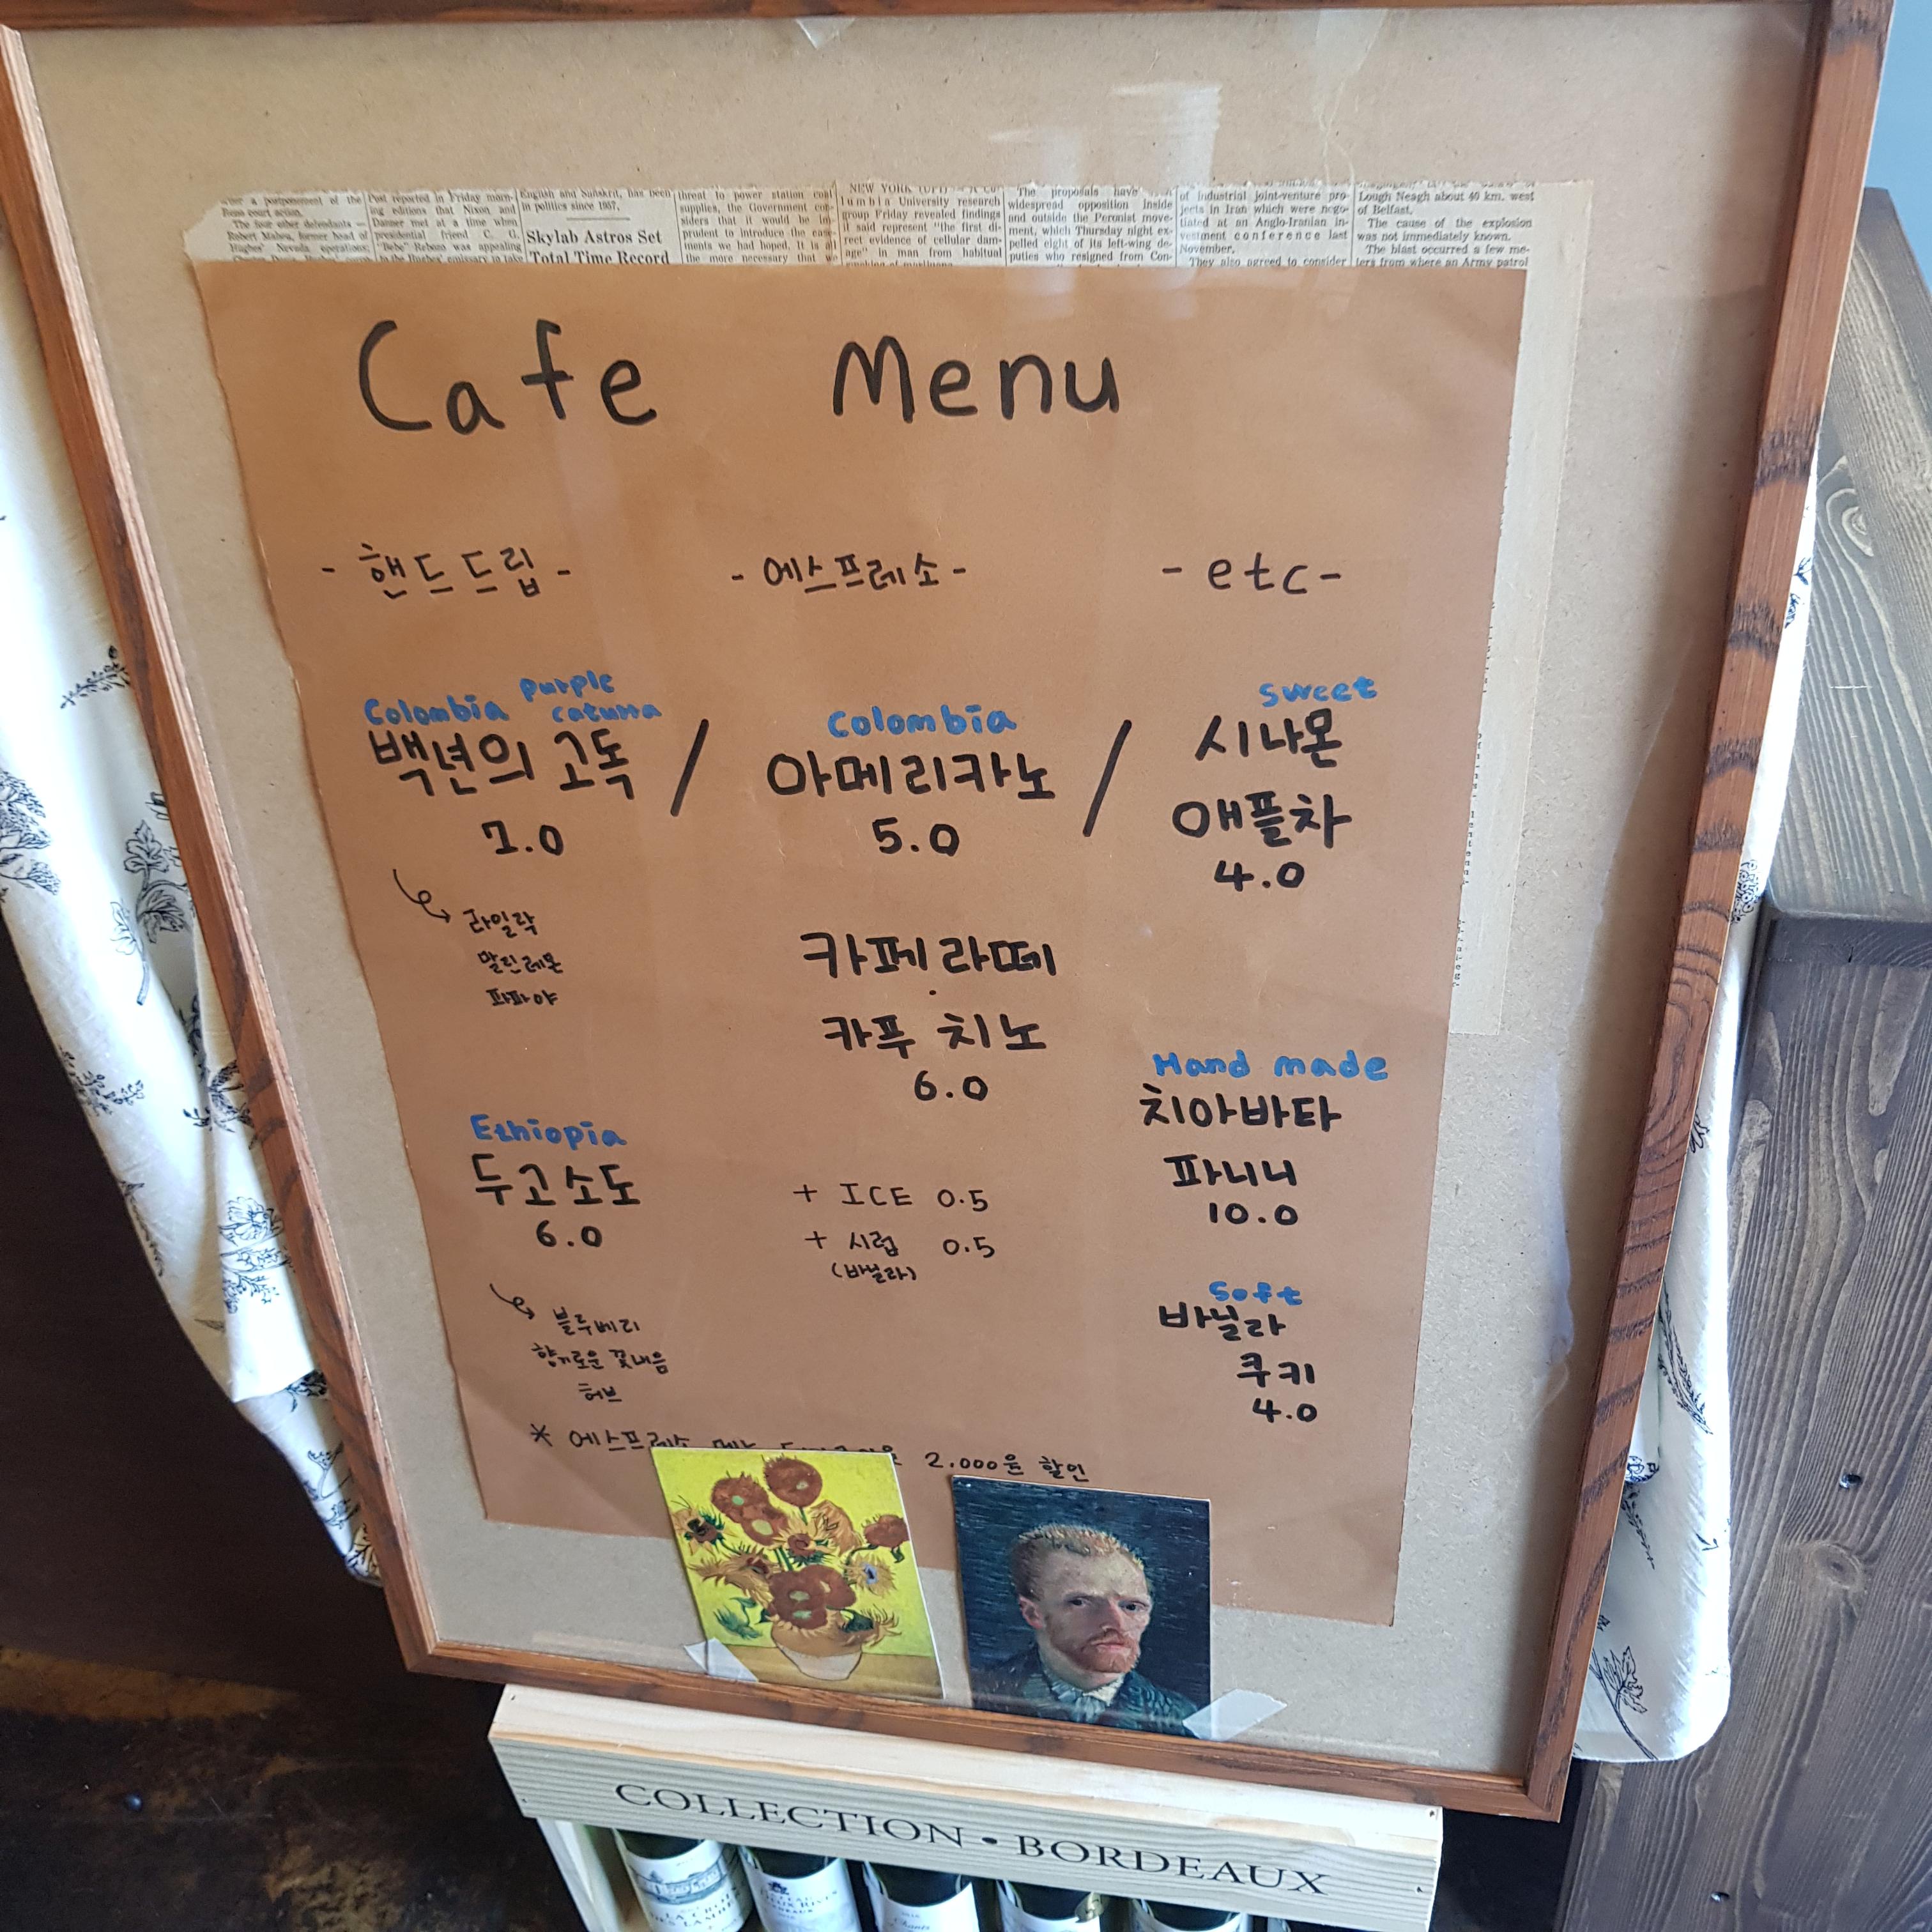 when a postponement of the
Bronx court action.
The four other defendants —
Robert Maheu, former head of
Hughes' Nevada operations;
Post reported in Friday morn-
ing editions that Nixon and
Danner met at a time when
presidential friend C. G.
"Bebe" Rebozo was appealing
to the Hughes' emissary to take
English and Sanskrit, has been
in politics since 1957.
Skylab Astros Set
Total Time Record
threat to power station coal
supplies, the Government con-
siders that it would be im-
prudent to introduce the ease-
ments we had hoped. It is all
the more necessary that we
NEW YORK (UPI) — A Co-
lumbia University research
group Friday revealed findings
it said represent "the first di-
rect evidence of cellular dam-
age" in man from habitual
smoking of marijuana.
The proposals have
widespread opposition inside
and outside the Peronist move-
ment, which Thursday night ex-
pelled eight of its left-wing de-
puties who resigned from Con-
of industrial joint-venture pro-
jects in Iran which were nego-
tiated at an Anglo-Iranian in-
vestment conference last
November.
They also agreed to consider
Lough Neagh about 40 km. west
of Belfast.
The cause of the explosion
was not immediately known.
The blast occurred a few me-
ters from where an Army patrol
Cafe Menu
- 핸드드립 -
Colombia purple
caturra
백년의 고독
7.0
라일락
말린레몬
파파야
Ethiopia
두고소도
6.0
블루베리
향기로운 꽃내음
허브
- 에스프레소 -
Colombia
아메리카노
5.0
카페라떼
·
카푸치노
6.0
+ ICE 0.5
+ 시럽 0.5
(바닐라)
- etc -
sweet
시나몬
애플차
4.0
Hand made
치아바타
파니니
10.0
Soft
바닐라
쿠키
4.0
* 에스프레소 메뉴 2.000원 할인
COLLECTION • BORDEAUX